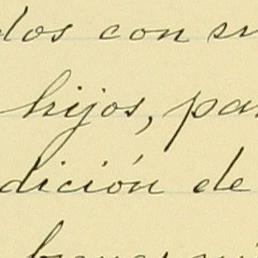 dos con su
hijos, par
dición de